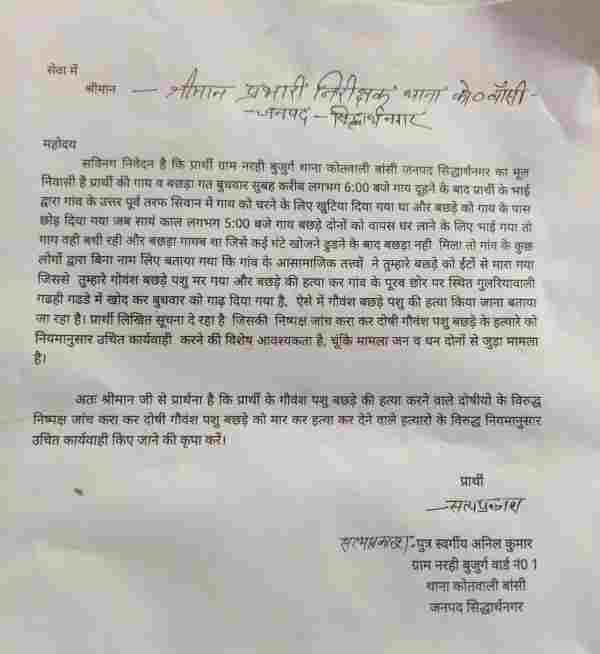 सेवा में
श्रीमान – श्रीमान प्रभारी निरीक्षक थाना को० बाँसी -
- जनपद - सिद्धार्थनगर
महोदय
सविनग निवेदन है कि प्रार्थी ग्राम नरही बुजुर्ग थाना कोतवाली बांसी जनपद सिद्धार्थनगर का मूल
निवासी है प्रार्थी की गाय व बछड़ा गत बुधवार सुबह करीब लगभग 6:00 बजे गाय दूहने के बाद प्रार्थी के भाई
द्वारा गांव के उत्तर पूर्व तरफ सिवान में गाय को चरने के लिए खुटिया दिया गया था और बछड़े को गाय के पास
छोड़ दिया गया जब सायं काल लगभग 5:00 बजे गाय बछड़े दोनों को वापस घर लाने के लिए भाई गया तो
गाय वही बधी रही और बछड़ा गायब था जिसे कई घंटे खोजने ढुडने के बाद बछड़ा नही मिला तो गांव के कुछ
लोगों द्वारा बिना नाम लिए बताया गया कि गांव के आसामाजिक तत्त्वों ने तुम्हारे बछड़े को ईंटों से मारा गया
जिससे तुम्हारे गोवंश बछड़े पशु मर गया और बछड़े की हत्या कर गांव के पूरव छोर पर स्थित गुलरियावाली
गढही गडडे में खोद कर बुधवार को गाढ़ दिया गया है, ऐसे में गौवंश बछड़े पशु की हत्या किया जाना बताया
जा रहा है। प्रार्थी लिखित सूचना दे रहा है जिसकी निष्पक्ष जांच करा कर दोषी गौवंश पशु बछड़े के हत्यारे को
नियमानुसार उचित कार्यवाही करने की विशेष आवश्यकता है, चूंकि मामला जन व धन दोनों से जुड़ा मामला
है।
अतः श्रीमान जी से प्रार्थना है कि प्रार्थी के गौवंश पशु बछड़े की हत्या करने वाले दोषीयो के विरुद्ध
निष्पक्ष जांच करा कर दोषी गौवंश पशु बछड़े को मार कर हत्या कर देने वाले हत्यारो के विरुद्ध नियमानुसार
उचित कार्यवाही किए जाने की कृपा करें।
प्रार्थी
– सत्यप्रकाश
सत्यप्रकाश/-पुत्र स्वर्गीय अनिल कुमार
ग्राम नरही बुजुर्ग वार्ड नं0 1
थाना कोतवाली बांसी
जनपद सिद्धार्थनगर